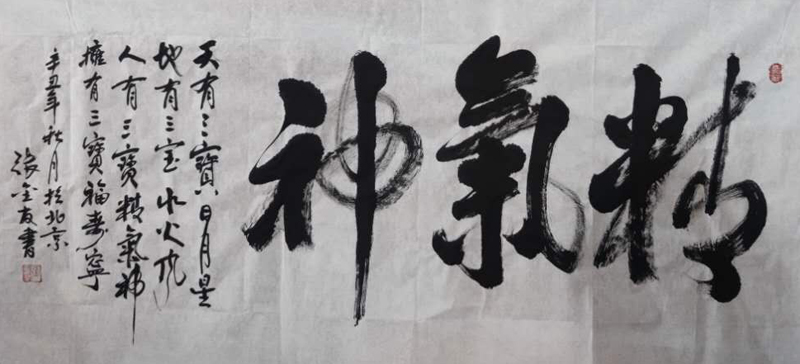 精氣神
天有三寶日月星
地有三宝水火风
人有三寶精氣神
擁有三寶福寿寧
辛丑年秋月於北京
張金友書